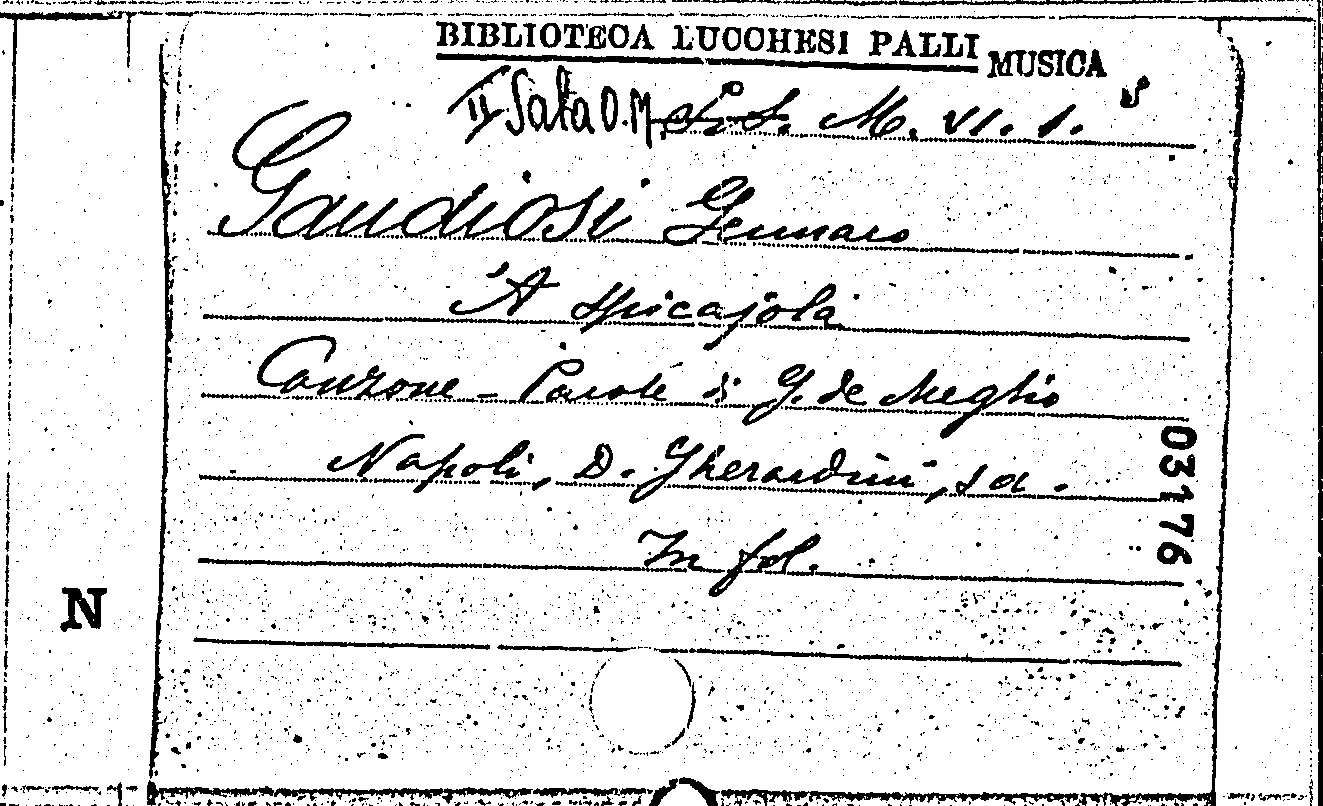 BIBLIOTECA LUCCHESI PALLI MUSICA
II Sala O.M. S.S. M. VI. 1.
Gaudiosi Gennaro
'A spicajola
Canzone - Parole di G. de Meglio
Napoli, D. Gherardini, s a.
In fol.
03176
N